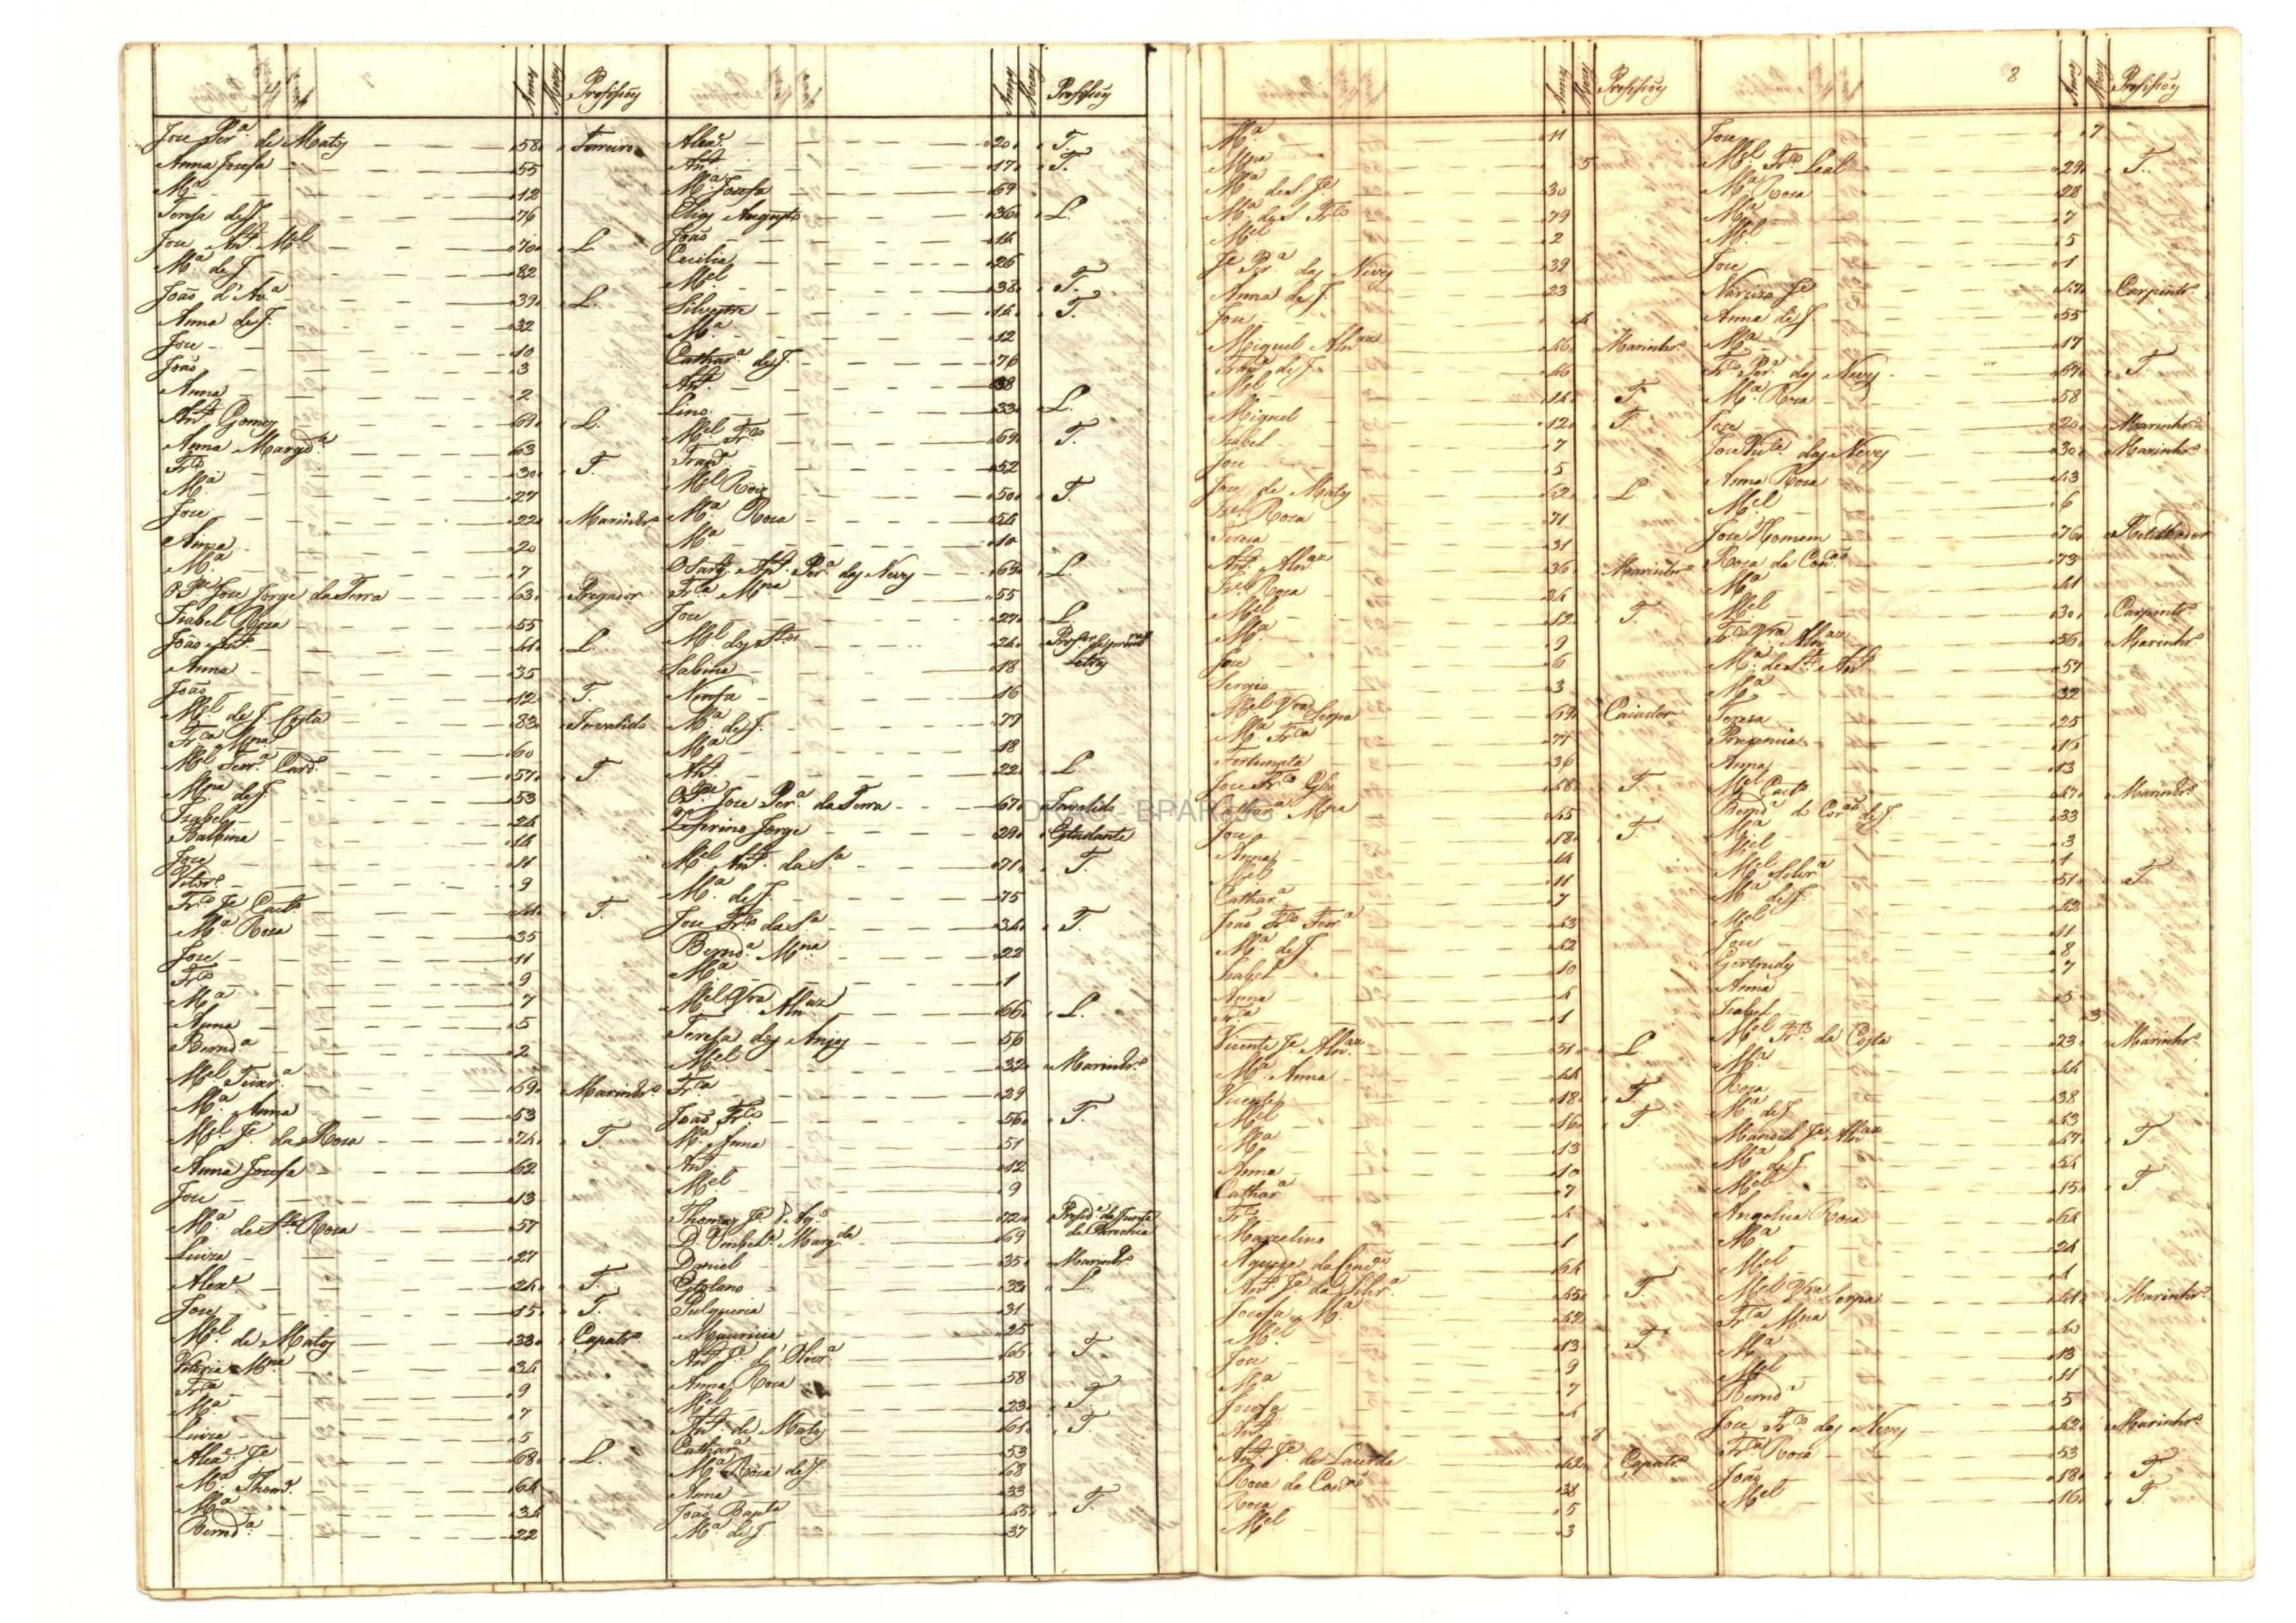 7
Annos Mezes Profissoẽs
Joze Per.ª de Matos 58 Ferreiro
Anna Josefa 55
M.ª 12
Teresa de J. 76
Joze Ant.º M.el 70 L.
M.ª de J. 82
João d'Av.ª 39 L.
Anna de J. 32
Joze 10
João 3
Anna 2
Ant.º Gomes 69 L.
Anna Margd.ª 63
Fr.co 30 T.
M.ª 27
Joze 22 Marinhr.º
Anna 20
M.ª 7
Joze Jorge da Terra 63 Pregador
Izabel Roza 55
João Ant.º 41 L.
Anna 35
João 12 T.
M.el de J. Costa 83 Invalido
Fr.ca M.na 60
M.el Ferr.ª Card.º 57 T
M.na de J. 53
Izabel 24
Balbina 14
Joze 11
9
Fr.co J.e Caet.º 41 T.
M.ª Roza 35
Joze 11
Fr.co 9
M.ª 7
Anna 5
Bernd.ª 2
M.el Teixr.ª 69 Marinhr.º
M.ª Anna 53
M.el J.e da Roza 74 T.
Anna Josefa 62
Joze 13
M.ª de Sta Roza 57
Luiza 27
Alex.e 24 T.
Joze 15 T.
M.el de Matos 33 Çapatr.º
Vitoria M.na 34
Fr.ca 9
M.ª 7
Luiza 5
Alex.e J.e 68 L.
M.ª Thom.ª 64
M.ª 34
Bernd.ª 22
Annos Mezes Profissoẽs
Alex.e 20 T.
Ant.º 17 T.
M.ª Josefa 69
Elias Augusto 36 L.
João 14
Cecilia 26
M.el 38 T.
Silvestre 14 T.
M.ª 12
Cathar.ª de J. 76
Ant.º 38
Lino 33 L.
M.el Fr.co 69 T.
Fran.ca 52
M.el Roiz 50 T.
M.ª Roza 54
M.ª 10
O Sarg.to Ant.º Per.ª das Neves 63 L.
Fr.ca M.na 55
Joze 27 L
M.el dos Stos 24 Profsor de prim.ras Letras
Sabina 18
Ninfa 16
M.ª de J. 79
M.ª 18
Ant.º 22 L
Joze Per.ª da Terra 67 Invalido
Zeferino Jorge 29 Estudante
M.el Ant.º da S.ª 71 T.
M.ª de J. 75
Joze Fr.co da S.ª 34 T.
Bernd.ª M.na 22
M.ª 1
M.el Vra Alvaz 66 L.
Teresa dos Anjos 56
M.el 32 Marinhr.º
Fr.ca 29
João Fr.co 56 T.
M.ª Anna 51
Ant.º 12
M.el 9
Thomaz J.e 72 Presid.e da Junta de Parochia
D. Umbel.ª Marg.da 69
Daniel 35 Marinhr.º
33 L.
Pulqueria 31
Mauricia 25
Ant.º J.e d'Olivr.ª 66 T
Anna Roza 58
M.el 23 T
Ant.º de Matos 61 T
Cathar.ª 53
M.ª Roza de J. 68
Anna 33
João Bapta 45 T.
M.ª de J. 37
Annos Mezes Profissoẽs
M.ª 11
M.na 5
M.ª de S. J.e 30
M.ª de S. Fr.co 79
M.el 2
J.e Per.ª das Neves 39
Anna de J. 23
Joze 4
Miguel Alvaz 46 Marinhr.º
Fran.ca de J. 46
M.el 14 T
Miguel 12 T
Izabel 7
Joze 5
Joze de Matos 62 L.
Roza 71
Teresa 31
Ant.º Alvaz 36 Marinhr.º
Roza 24
M.el 12 T.
M.ª 9
Joze 6
Sergio 3
M.el Vra Serpa 69 Caiador
M.ª Fr.ca 77
Fortunata 36
Joze Fr.co 48 T
Cathar.ª M.na 45
Joze 18 T.
Anna 14
M.el 11
Cathar.ª 7
João Fr.co Ferr.ª 43
M.ª de J. 42
Izabel 10
Anna 4
Fr.ca 1
Vicente J.e Alvaz 51 L
M.ª Anna 44
Vicente 18 T.
M.el 16 T.
M.ª 13
Anna 10
Cathar.ª 7
Fr.co 4
Marcelino 1
Agueda da Conc.ão 64
Ant.º J.e da Silvr.ª 45 T
Josefa M.ª 42
M.el 13 T.
Joze 9
M.ª 7
Josefa 4
Ant.º 8
Ant.º J.e de Lacerda 42 Çapatr.º
Roza da Conc.ão 38
Roza 5
M.el 3
8
Annos Mezes Profissoẽs
Joze 7
M.el Fr.co Leal 29 T.
M.ª Roza 28
M.ª 7
M.el 5
Joze 1
Narcizo J.e 47 Carpintr.º
Anna de J. 55
M.ª 17
Fr.co Per.ª das Neves 67 T
M.ª Roza 58
Joze 20 Marinhr.º
Joze das Neves 30 Marinhr.º
Anna Roza 43
M.el 6
Joze Homem 76 Retelhador
Roza da Conc.ão 73
M.ª 41
M.el 30 Carpintr.º
Fr.co Vra Alvaz 56 Marinhr.º
M.ª de Sto Ant.º 57
M.ª 32
Tereza 25
16
Anna 13
M.el Caet.º 47 Marinhr.º
Bernd.ª do Cor.ão de J. 33
M.ª 3
M.el 1
M.el Silvr.ª 51 T.
M.ª de J. 42
M.el 11
Joze 8
Gertrudes 7
Anna 5
Izabel 3
M.el Fr.co da Costa 23 Marinhr.º
M.ª 44
Roza 38
M.ª de J. 43
Manoel J.e Alvaz 47 T.
M.ª de J. 54
M.el 15 T
Angelica Roza 64
M.ª 24
M.el 1
M.el Vra Serpa 41 Marinhr.º
Fr.ca M.na 40
M.ª 13
M.el 11
Bernd.ª 5
Joze Fr.co das Neves 62 Marinhr.º
Fr.ca Roza 53
João 18 T
M.el 16 T.